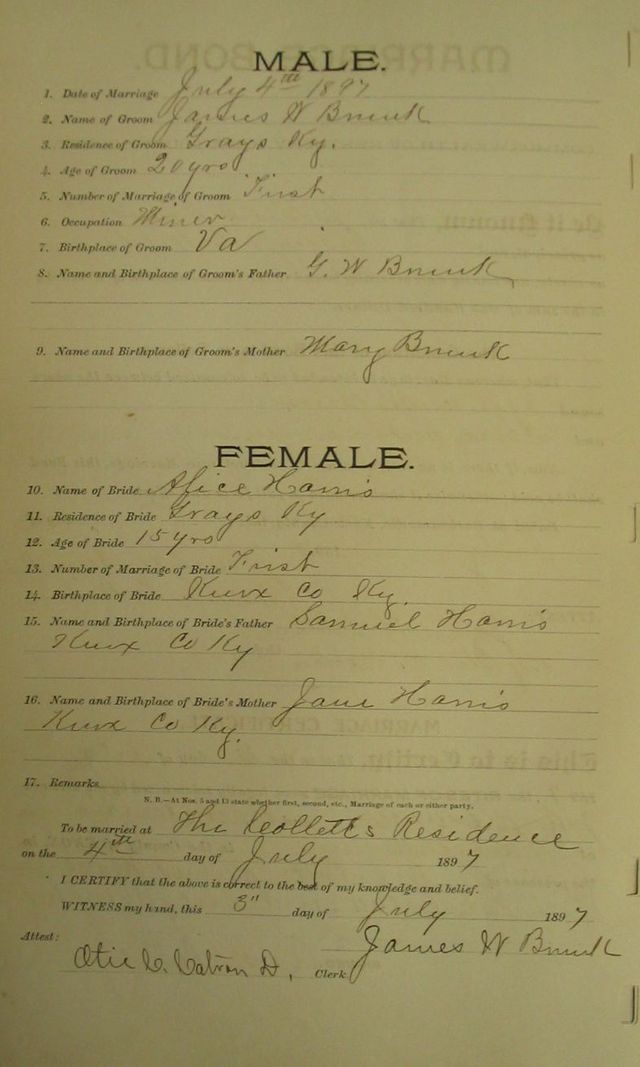 MALE.
1. Date of Marriage July 4th 1897
2. Name of Groom James W
3. Residence of Groom Grays Ky.
4. Age of Groom 20 yrs
5. Number of Marriage of Groom First
6. Occupation Miner
7. Birthplace of Groom Va
8. Name and Birthplace of Groom's Father G. W
9. Name and Birthplace of Groom's Mother Mary
FEMALE.
10. Name of Bride Alice Harris
11. Residence of Bride Grays Ky
12. Age of Bride 15 yrs
13. Number of Marriage of Bride First
14. Birthplace of Bride Knox Co Ky.
15. Name and Birthplace of Bride's Father Samuel Harris
Knox Co Ky
16. Name and Birthplace of Bride's Mother Jane Harris
Knox Co Ky.
17. Remarks
N. B.—At Nos. 5 and 13 state whether first, second, etc., Marriage of each or either party.
To be married at The Residence
on the 4th day of July 1897
I CERTIFY that the above is correct to the best of my knowledge and belief.
WITNESS my hand, this 3" day of July 1897
James W
Attest:
Clerk